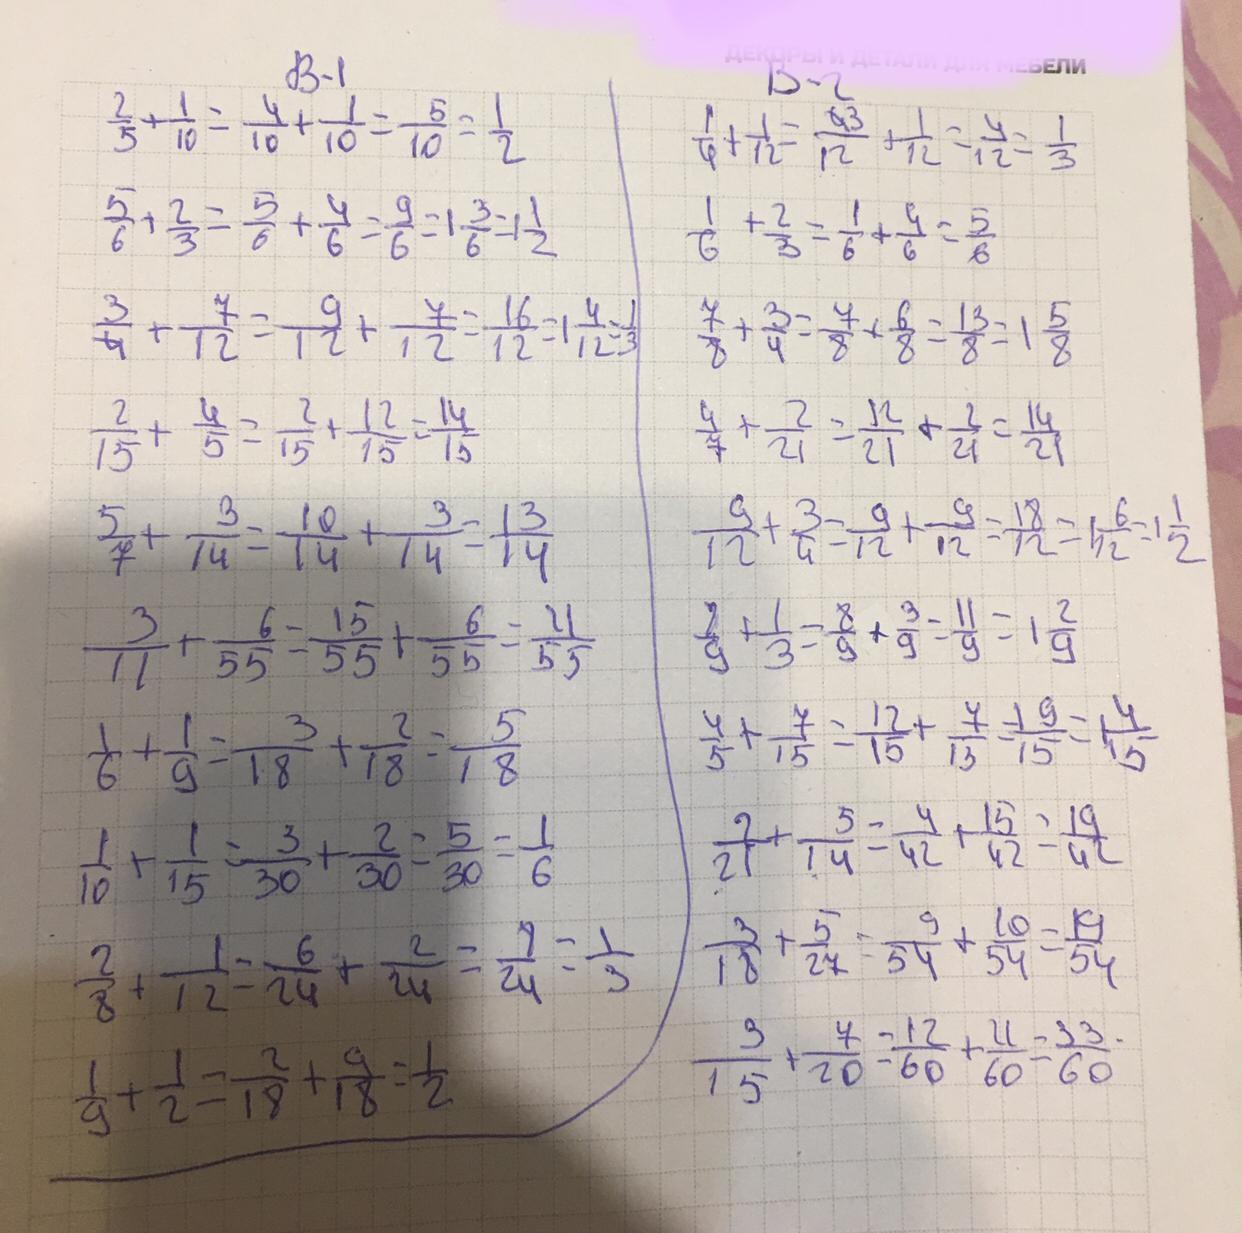 ДЕКОРЫ И ДЕТАЛИ ДЛЯ МЕБЕЛИ
В-1
2/5 + 1/10 = 4/10 + 1/10 = 5/10 = 1/2
5/6 + 2/3 = 5/6 + 4/6 = 9/6 = 1 3/6 = 1 1/2
3/4 + 7/12 = 9/12 + 7/12 = 16/12 = 1 4/12 = 1/3
2/15 + 4/5 = 2/15 + 12/15 = 14/15
5/7 + 3/14 = 10/14 + 3/14 = 13/14
3/11 + 6/55 = 15/55 + 6/55 = 21/55
1/6 + 1/9 = 3/18 + 2/18 = 5/18
1/10 + 1/15 = 3/30 + 2/30 = 5/30 = 1/6
2/8 + 1/12 = 6/24 + 2/24 = /24 = 1/3
1/9 + 1/2 = 2/18 + 9/18 = 1/2
В-2
1/4 + 1/12 = 3/12 + 1/12 = 4/12 = 1/3
1/6 + 2/3 = 1/6 + 4/6 = 5/6
7/8 + 3/4 = 7/8 + 6/8 = 13/8 = 1 5/8
4/7 + 2/21 = 12/21 + 2/21 = 14/21
9/12 + 3/4 = 9/12 + 9/12 = 18/12 = 1 6/12 = 1 1/2
8/9 + 1/3 = 8/9 + 3/9 = 11/9 = 1 2/9
4/5 + 7/15 = 12/15 + 7/15 = 19/15 = 1 4/15
2/21 + 5/14 = 4/42 + 15/42 = 19/42
3/18 + 5/27 = 9/54 + 10/54 = 19/54
3/15 + 7/20 = 12/60 + 21/60 = 33/60